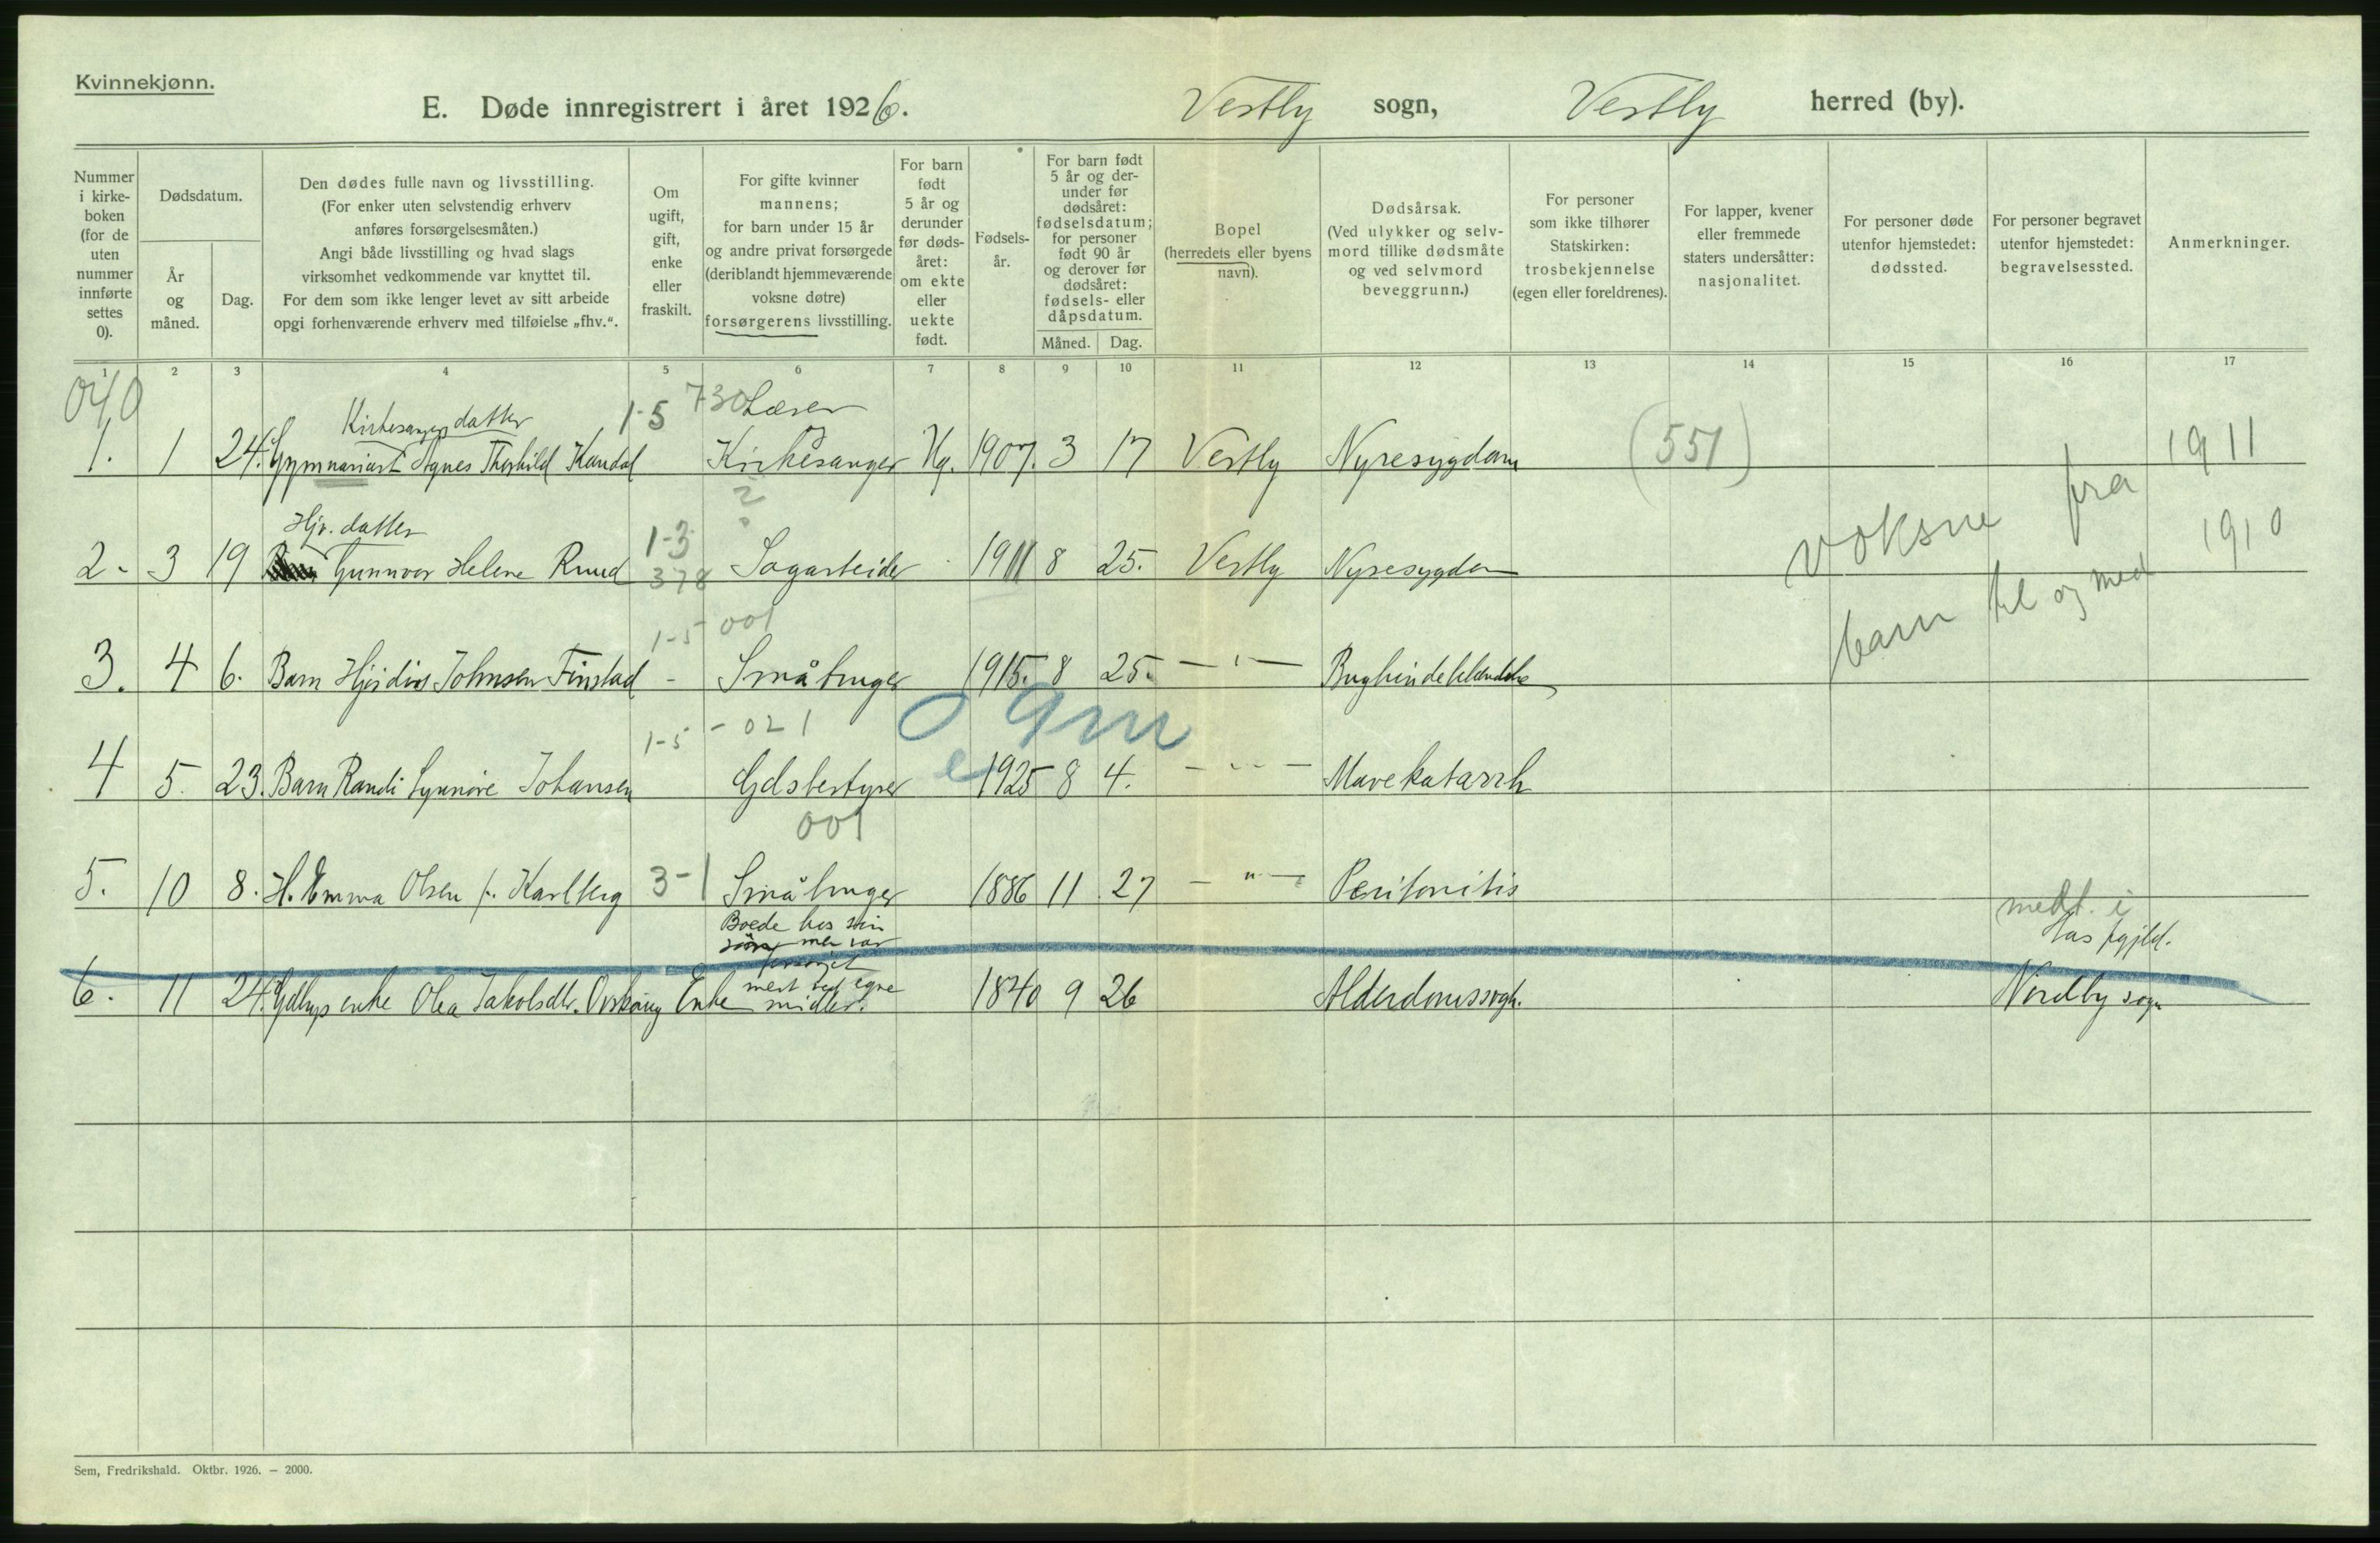 Kvinnekjønn.
E. Døde innregistrert i året 1926. Vestby sogn, Vestby herred (by).
Nummer i kirke- boken (for de uten nummer innførte settes 0).
Dødsdatum.
År og måned.
Dag.
Den dødes fulle navn og livsstilling.
(For enker uten selvstendig erhverv
anføres forsørgelsesmåten.)
Angi både livsstilling og hvad slags
virksomhet vedkommende var knyttet til.
For dem som ikke lenger levet av sitt arbeide
opgi forhenværende erhverv med tilføielse „fhv.“.
Om ugift, gift, enke eller fraskilt.
For gifte kvinner
mannens;
for barn under 15 år
og andre privat forsørgede
(deriblandt hjemmeværende
voksne døtre)
forsørgerens livsstilling.
For barn født 5 år og derunder før døds- året: om ekte eller uekte født.
Fødsels- år.
For barn født 5 år og der- under før dødsåret: fødselsdatum; for personer født 90 år og derover før dødsåret: fødsels- eller dåpsdatum.
Måned. Dag.
Bopel
(herredets eller byens
navn).
Dødsårsak.
(Ved ulykker og selv-
mord tillike dødsmåte
og ved selvmord
beveggrunn.)
For personer
som ikke tilhører
Statskirken:
trosbekjennelse
(egen eller foreldrenes).
For lapper, kvener
eller fremmede
staters undersåtter:
nasjonalitet.
For personer døde
utenfor hjemstedet:
dødssted.
For personer begravet
utenfor hjemstedet:
begravelsessted.
Anmerkninger.
1 2 3 4 5 6 7 8 9 10 11 12 13 14 15 16 17
040 Kirkesangerdatter 1-5 730 Lærer
1. 1 24. Gymnasiast Agnes Thorhild Kandal Kirkesanger Ug. 1907. 3 17 Vestby Nyresygdom (551) 1911
?
voksne fra
Hjv. datter 1-3 1910
2. 3 19 Gunnvor Helene Ruud 378 Sagarbeider 1911 8 25. Vestby Nyresygdom
barn til og med
1-5 001
3. 4 6. Barn Hjørdis Johnsen Finstad - Småbruger 1915. 8 25. — " — Bughindebetændelse
1-5 - 021 0 9m
4 5. 23. Barn Randi Synnøve Johansen Gdsbestyrer e 1925 8 4. — " — Mavekatarrh
001
5. 10 8. H. Emma Olsen f. Karlberg 3-1 Småbruger 1886 11 27 — " — Peritonitis
Boede hos sin
søn, men var
forsørget
mest ved egne
midler.
medt. i
Aas pgjld.
6. 11 24. Gdbrgs enke Olea Jakobsdtr. Enke 1840 9 26 Alderdomssvagh. Nordby sogn
Sem, Fredrikshald. Oktbr. 1926. — 2000.